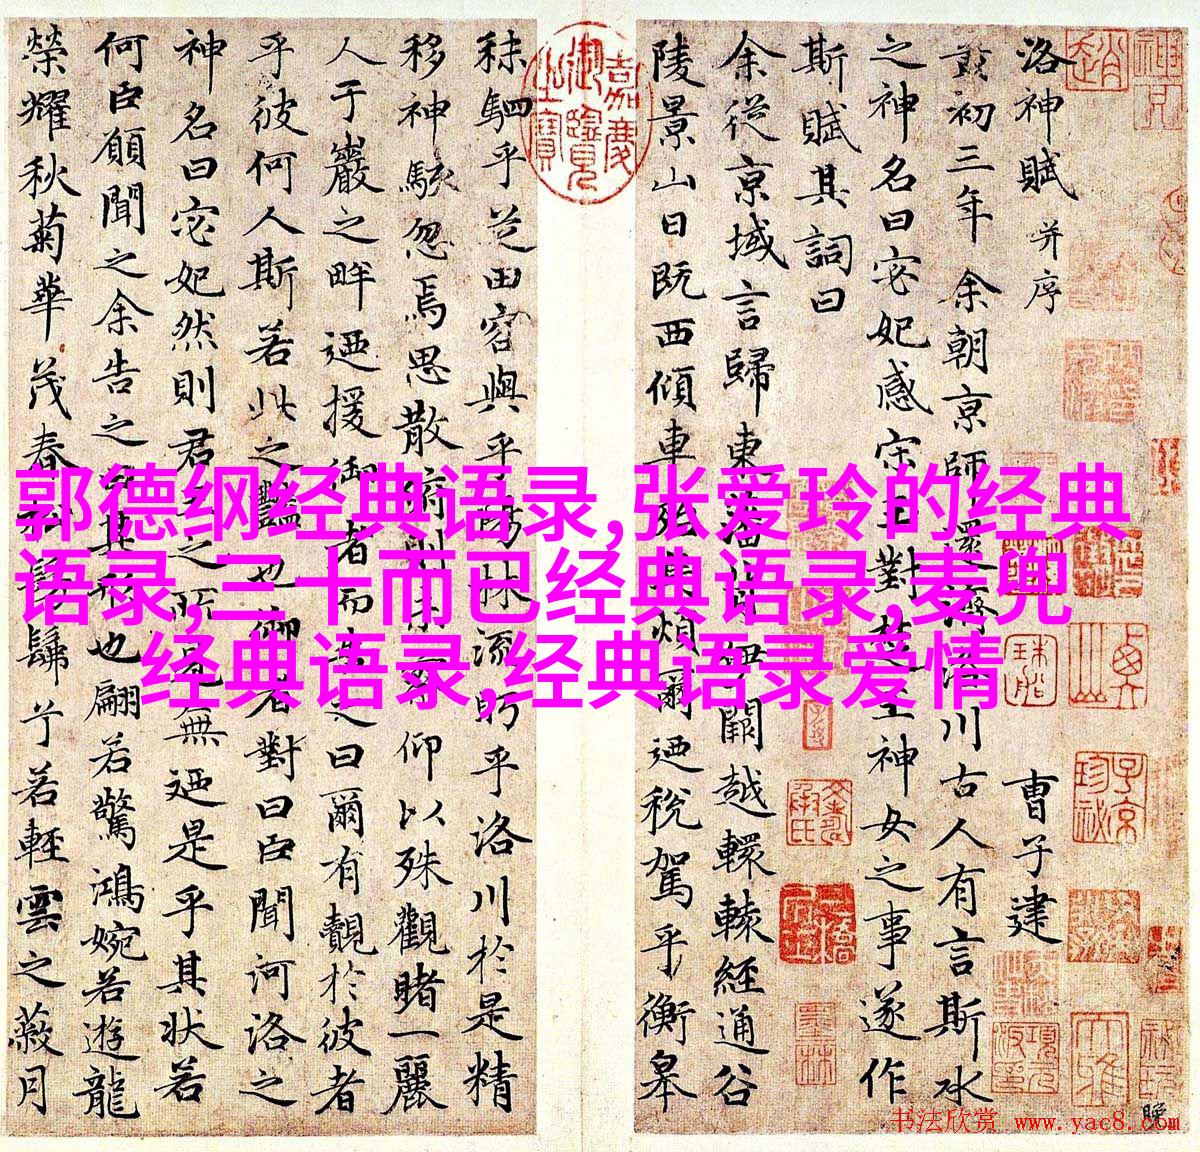 洛神賦 并序
曹子建
黃初三年余朝京師還濟洛川古人有言斯水
之神名曰宓妃感宋玉對楚王神女之事遂作
斯賦其詞曰
余從京域言歸東藩背伊闕越轘轅經通谷
陵景山日既西傾車殆馬煩爾迺稅駕乎蘅皋
秣駟乎芝田容與乎陽林流眄乎洛川於是精
移神駭忽焉思散俯則未察仰以殊觀睹一麗
人于巖之畔迺援御者而告之曰爾有覿於彼者
乎彼何人斯若此之豔也御者對曰臣聞河洛之
神名曰宓妃然則君王之所見無迺是乎其狀若
何臣願聞之余告之曰其形也翩若驚鴻婉若遊龍
榮耀秋菊華茂春松髣髴兮若輕雲之蔽月
嘉慶御覽之寶
郭德纲经典语录,张爱玲的经典
语录,三十而已经典语录,麦兜
经典语录,经典语录爱情
书法欣赏 www.yac8.com